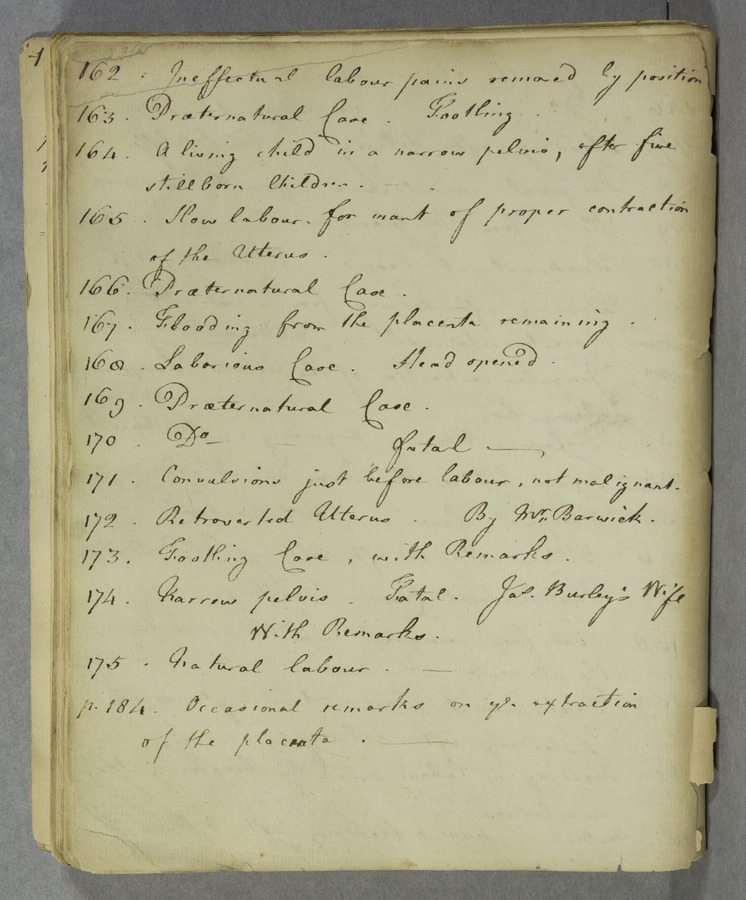 162 . Ineffectual labour pains removed by position
163 . Præternatural Case . Footling .
164 . A living child in a narrow pelvis, after five
stillborn Children . -
165 . Slow labour for want of proper contraction
of the Uterus .
166 . Præternatural Case .
167 . Flooding from the placenta remaining .
168 . Laborious Case . Head opened .
169 . Præternatural Case .
170 . Do — fatal —
171 . Convulsions just before labour, not malignant.
172 . Retroverted Uterus . By Mr. Barwick .
173 . Footling Case, with Remarks .
174 . Narrow pelvis . Fatal . Jas. Burley's Wife
With Remarks .
175 . Natural labour . —
p. 184 . Occasional remarks on ye. extraction
of the placenta . —